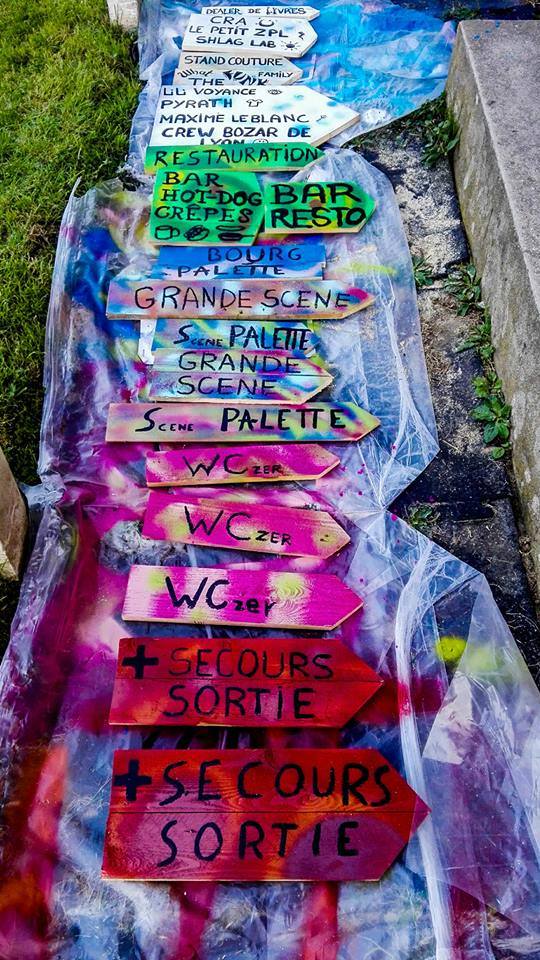 DEALER DE LIVRES
CRA
LE PETIT ZPL
SHLAG LAB
STAND COUTURE
THE FAMILY
VOYANCE
PYRATH
MAXIME LEBLANC
CREW BOZAR DE
LYON
RESTAURATION
BAR
HOT-DOG
CRÊPES
BAR
RESTO
BOURG
PALETTE
GRANDE SCENE
SCENE PALETTE
GRANDE
SCENE
SCENE PALETTE
WCZER
WCZER
WCzer
+ SECOURS
SORTIE
+ SECOURS
SORTIE